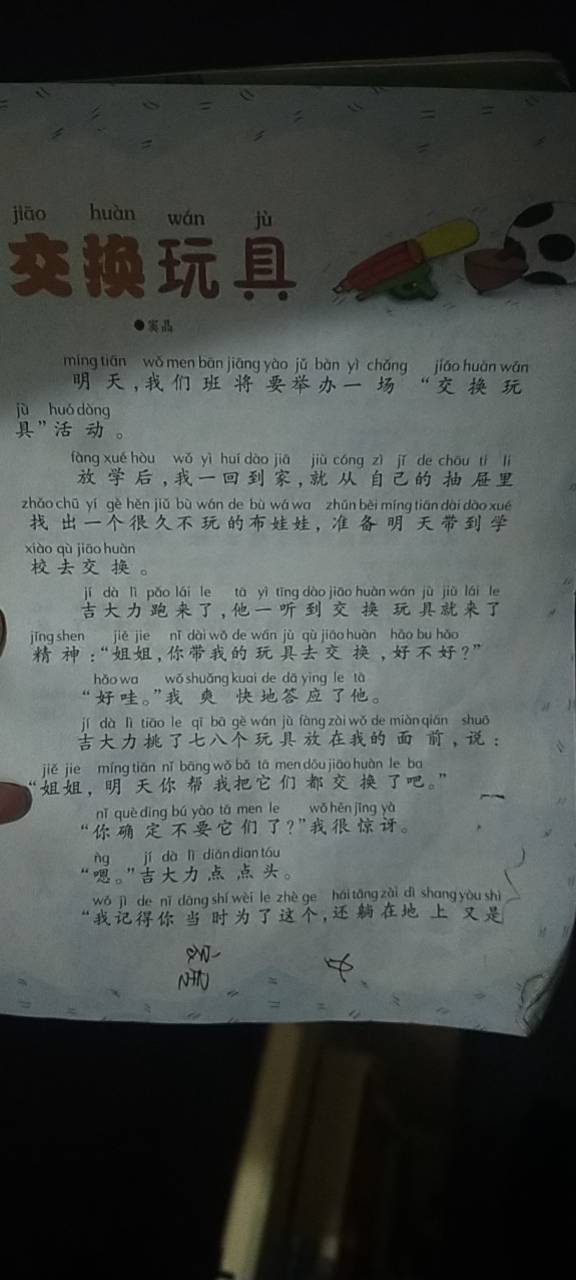 jiāo huàn wán jù
交换玩具
●窦晶
míng tiān wǒ men bān jiāng yào jǔ bàn yì chǎng jiāo huàn wán
明天,我们班将要举办一场“交换玩
jù huó dòng
具”活动。
fàng xué hòu wǒ yì huí dào jiā jiù cóng zì jǐ de chōu ti li
放学后,我一回到家,就从自己的抽屉里
zhǎo chū yí gè hěn jiǔ bù wán de bù wá wa zhǔn bèi míng tiān dài dào xué
找出一个很久不玩的布娃娃,准备明天带到学
xiào qù jiāo huàn
校去交换。
jí dà lì pǎo lái le tā yì tīng dào jiāo huàn wán jù jiù lái le
吉大力跑来了,他一听到交换玩具就来了
jīng shen jiě jie nǐ dài wǒ de wán jù qù jiāo huàn hǎo bu hǎo
精神:“姐姐,你带我的玩具去交换,好不好?”
hǎo wa wǒ shuǎng kuai de dā yìng le tā
“好哇。”我爽快地答应了他。
jí dà lì tiāo le qī bā gè wán jù fàng zài wǒ de miàn qián shuō
吉大力挑了七八个玩具放在我的面前,说:
jiě jie míng tiān nǐ bāng wǒ bǎ tā men dōu jiāo huàn le ba
“姐姐,明天你帮我把它们都交换了吧。”
nǐ què dìng bú yào tā men le wǒ hěn jīng yà
“你确定不要它们了?”我很惊讶。
ǹg jí dà lì diǎn dian tóu
“嗯。”吉大力点点头。
wǒ jì de nǐ dāng shí wèi le zhè ge hái tǎng zài dì shang yòu shì
“我记得你当时为了这个,还躺在地上又是